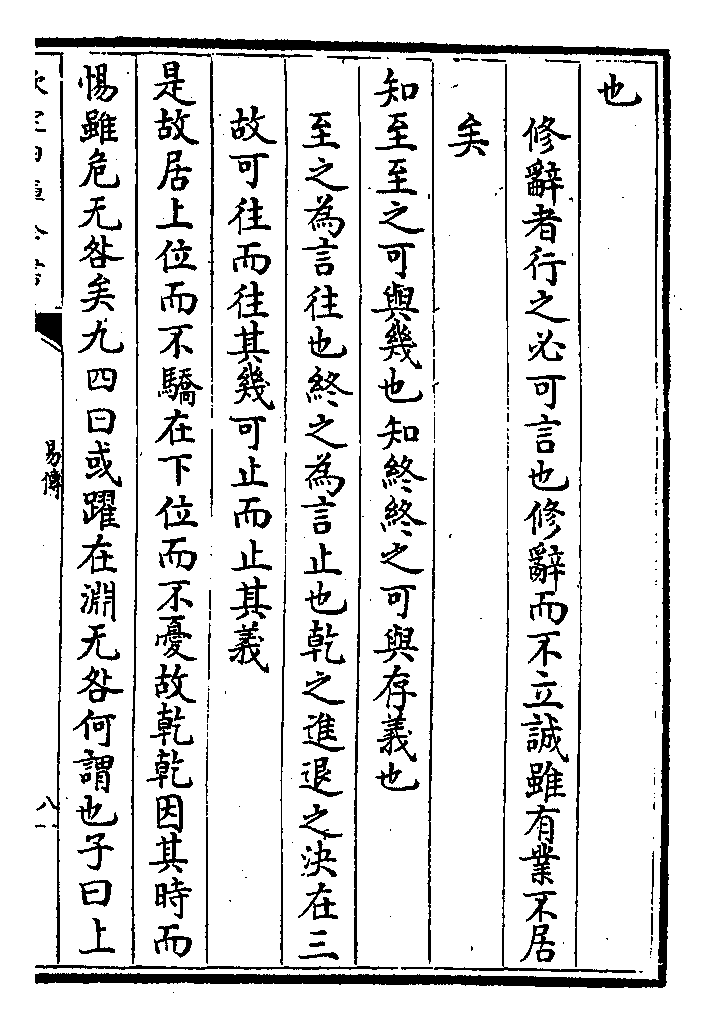 也
修辭者行之必可言也修辭而不立誠雖有業不居
矣
知至至之可與幾也知終終之可與存義也
至之為言往也終之為言止也乾之進退之決在三
故可往而往其幾可止而止其義
是故居上位而不驕在下位而不憂故乾乾因其時而
惕雖危无咎矣九四曰或躍在淵无咎何謂也子曰上
易傳
八